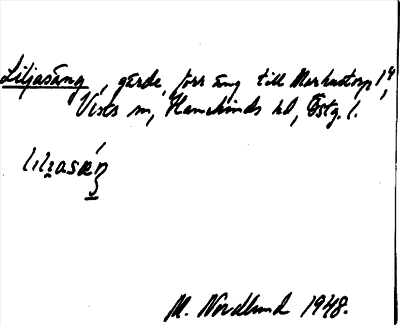 Liljasäng, gärde, förr äng till Markustorp 1⁴,
Vists sn, Hanekinds hd, Östg. l.
lil̯asæ̀ŋ
M. Nordlund 1948.